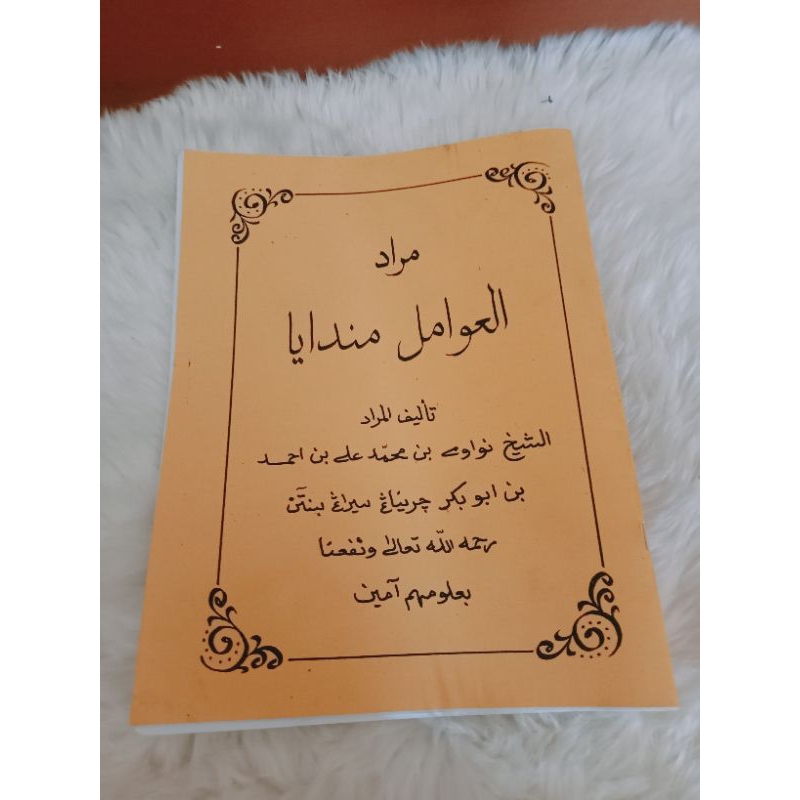 مراد
العوامل مندايا
تأليف المراد
الشيخ نواوى بن محمّد على بن احمد
بن ابو بكر چريناڠ سيراڠ بنتن
رحمه الله تعالى ونفعنا
بعلومهم آمين